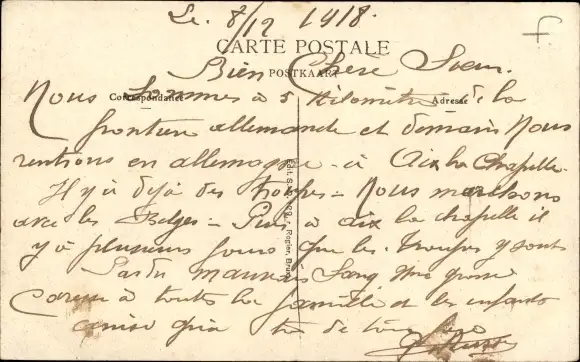 Le 8/12 1918.
CARTE POSTALE
POSTKAART
Bien Chère Soeur.
Correspondance
Adresse
Nous Sommes à 5 Kilomètres de la
frontière allemande et demain Nous
rentrons en allemagne - à Aix la Chapelle.
Il y à déjà des troupes = Nous marchons
avec les Belges = Puis à aix la chapelle il
y à plusieurs jours que les troupes y sont
mauvais Sang Une grosse
Caresse à toute la famille et les enfants
qu'a de